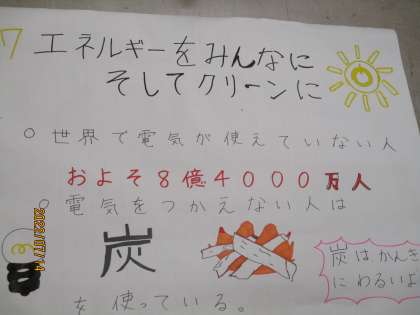 7 エネルギーをみんなに
そしてクリーンに
○世界で電気が使えていない人
およそ8億4000万人
○電気をつかえない人は
炭
を使っている。
炭はかんき
にわるいよ
2022/07/14